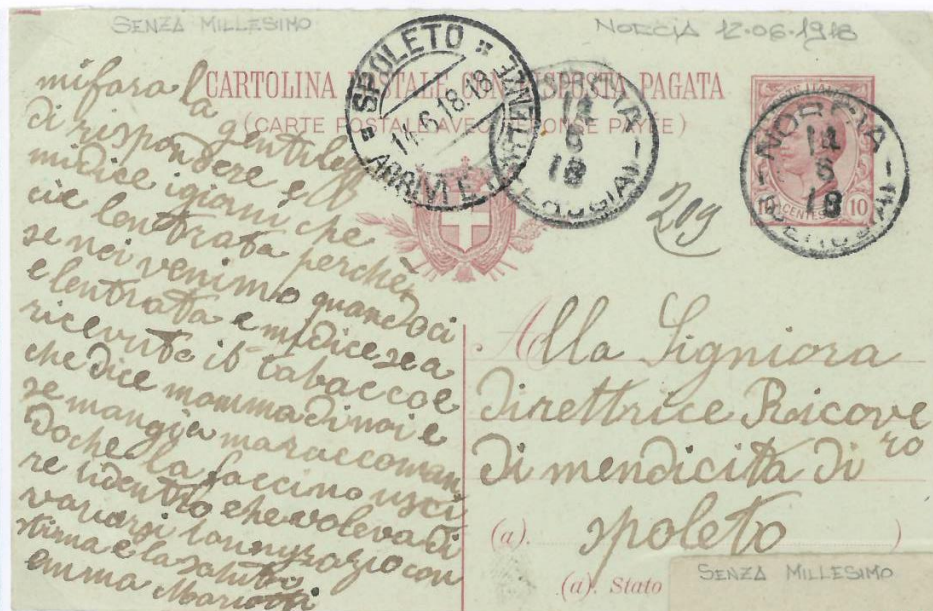 SENZA MILLESIMO
NORCIA 12-06-1918
CARTOLINA POSTALE CON RISPOSTA PAGATA
(CARTE POSTALE AVEC RÉPONSE PAYÉE)
SPOLETO
14.6.18.18
ARRIVI E PARTENZE
NORCIA
14
6
18
(PERUGIA)
NORCIA
14
6
18
(PERUGIA)
10 CENTESIMI 10
209
mifara la
gentilezza
di rispondere e
midice i giorni che
cie lentrata perchè
se noi venimo quando ci
e lentrata e midice sea
ricevuto il tabacco e
che dice mamma di noi e
se mangia maraccoman
doche la faccino usci
re lidentro che voleva di
vararsi lanngrazio con
stima e la saluto
emma Mariotti
Alla Signiora
Direttrice Ricove
ro
di mendicitta di
spoleto
(a).
)
(a). Stato
SENZA MILLESIMO